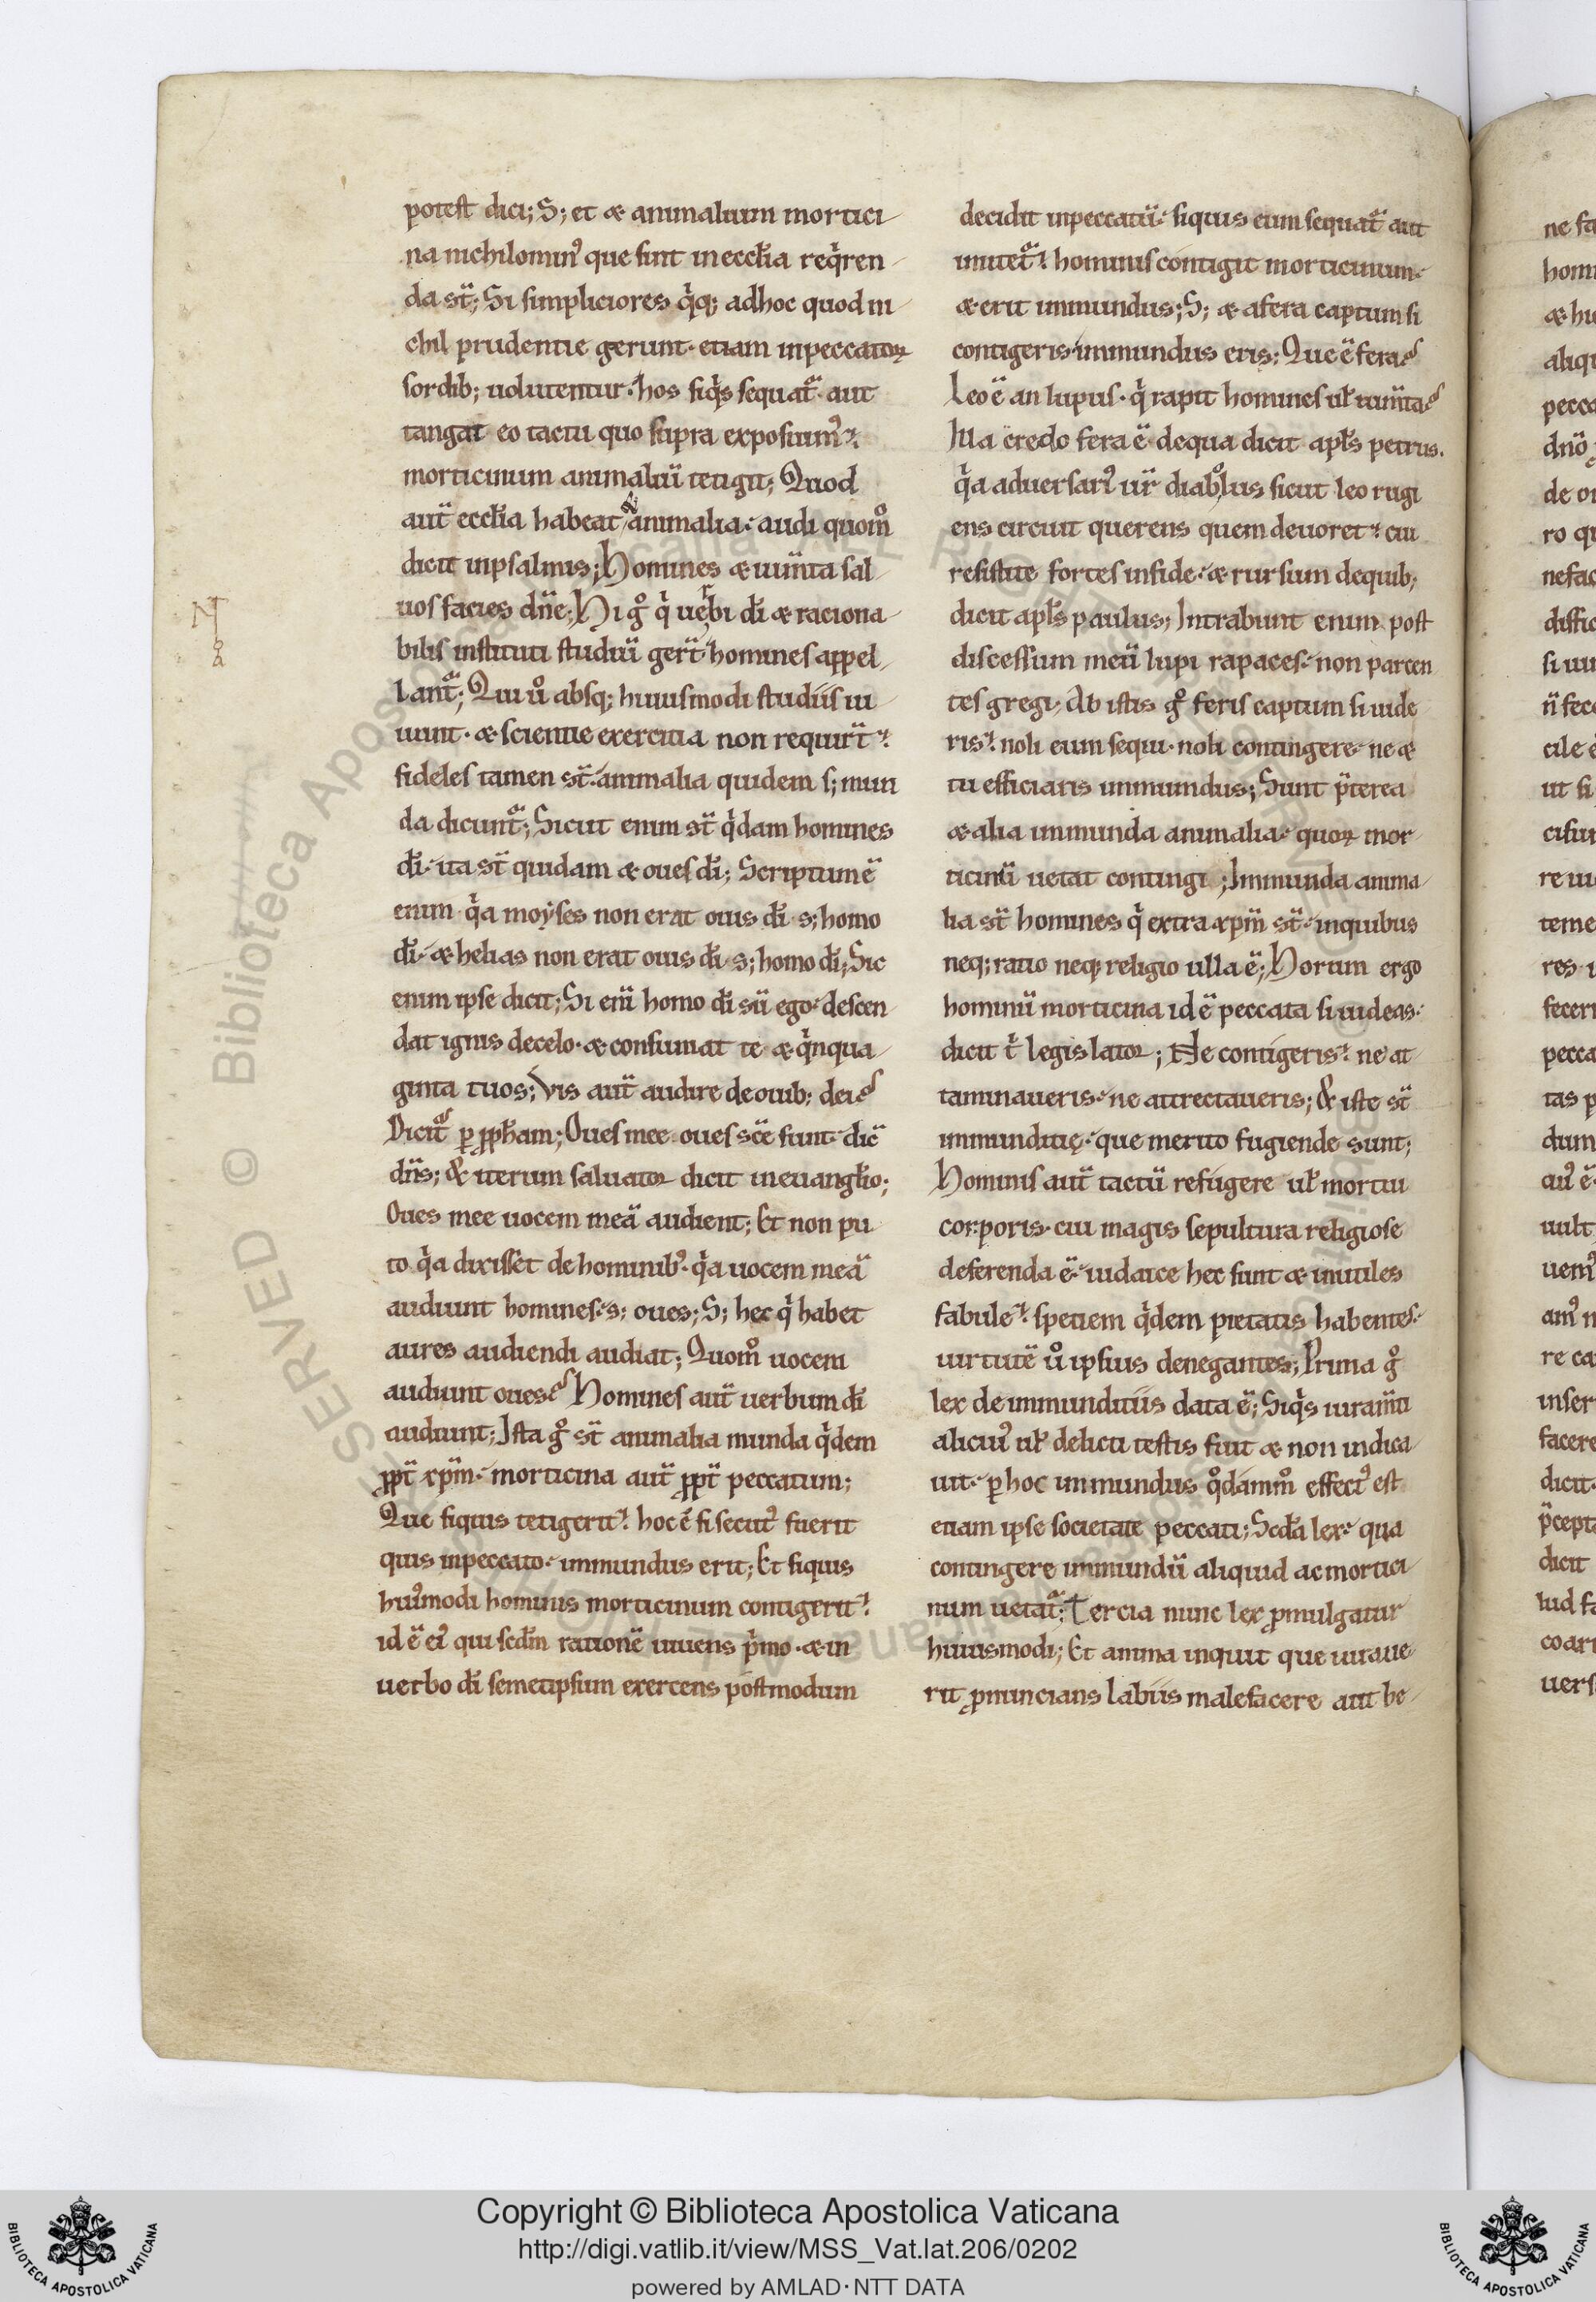 potest dici; S; et & animalium mortici
na nichilomin᾽ que sint in eccłia reqͥren
da st̄; Si simpliciores qͥq; adhoc quod ni
chil prudentie gerunt· etiam in peccatoꝝ
sordib; uolutentur· hos siqͥs sequat᷑· aut
tangat eo tactu quo supra exposuim᾽
morticinum animaliū tetigit; Quod
aut̄ eccłia habeat & animalia· audi quom̊
dicit in psalmis; Homines & iumta sal
uos facies dn̄e; Hi g̊ qͥ uerbi dī & raciona
bilis instituti studiū ger̄t homines appel
lant᷑; Qui ů absq; huiusmodi studiis ui
uunt· & scientie exercitia non requir̄t
fideles tamen st̄· animalia quidem s; mun
da dicunt᷑; Sicut enim st̄ qͥdam homines
dī· ita st̄ quidam & oues dī; Scriptum ē
enim qͥa moyses non erat ouis dī s; homo
dī· & helias non erat ouis dī s; homo dī; Sic
enim ipse dicit; Si enī homo dī sū ego· descen
dat ignis de celo· & consumat te & qͥnqua
ginta tuos; Vis aut̄ audire de ouib; dei
Dicit᷑ ꝑ ꝓpħam; Oues mee oues sc̄e sunt· dic̄
dn̄s; & iterum saluator dicit in euangło;
Oues mee uocem meā audient; Et non pu
to qͥa dixisset de hominib᾽· qͥa uocem meā
audiunt homines· s; oues; S; hec qͥ habet
aures audiendi audiat; Quom̊ uocem
audiunt oues Homines aut̄ uerbum dī
audiunt; Ista g̊ st̄ animalia munda qͥdem
ꝓpt̄ xp̄m· morticina aut̄ ꝓpt̄ peccatum;
Que siquis tetigerit hoc ē si secut᾽ fuerit
quis in peccato· immundus erit; Et siquis
hui᾽modi hominis morticinum contigerit
id ē ei᾽ qui scdm̄ rationē uiuens pͥmo & in
uerbo dī semetipsum exercens postmodum
decidit in peccatū· siquis eum sequat᷑ aut
imitet᷑ hominis contigit morticinum·
& erit immundus; S; & a fera captum si
contigeris immundus eris; Que ē fera
Leo ē an lupus· qͥ rapit homines uł iumta
Illa credo fera ē de qua dicit apłs petrus·
qͥa aduersari᾽ ur̄ diabolus sicut leo rugi
ens circuit querens quem deuoret cui
resistite fortes in fide· & rursum de quib;
dicit apłs paulus; Intrabunt enim post
discessum meū lupi rapaces· non parcen
tes gregi; Ab istis g̊ feris captum si uide
ris noli eum sequi· noli contingere· ne &
tu efficiaris immundus; Sunt p̄terea
& alia immunda animalia· quoꝝ mor
ticinū uetat contingi; Immunda anima
lia st̄ homines qͥ extra xp̄m st̄· in quibus
neq; ratio neq; religio ulla ē; Horum ergo
hominū morticina id ē peccata si uideas·
dicit tͥ legislator; Ne contigeris ne at
taminaueris· ne attrectaueris; & iste st̄
immunditię· que merito fugiende sunt;
Hominis aut̄ tactū refugere uł mortui
corporis· cui magis sepultura religiose
deferenda ē· iudaice hec sunt & inutiles
fabule spetiem qͥdem pietatis habentes·
uirtutē ů ipsius denegantes; Prima g̊
lex de immunditiis data ē; Siqͥs iuram̄ti
alicui᾽ uł delicti testis fuit & non indica
uit· ꝑ hoc immundus q̊damm̊ effect᾽ est
etiam ipse societate peccati; Scd̄a lex· qua
contingere immundū aliquid ac mortici
num uetat᷑; Tercia nunc lex ꝓmulgatur
huiusmodi; Et anima inquit que iuraue
rit ꝓnuncians labiis malefacere aut be
Copyright © Biblioteca Apostolica Vaticana
http://digi.vatlib.it/view/MSS_Vat.lat.206/0202
powered by AMLAD·NTT DATA